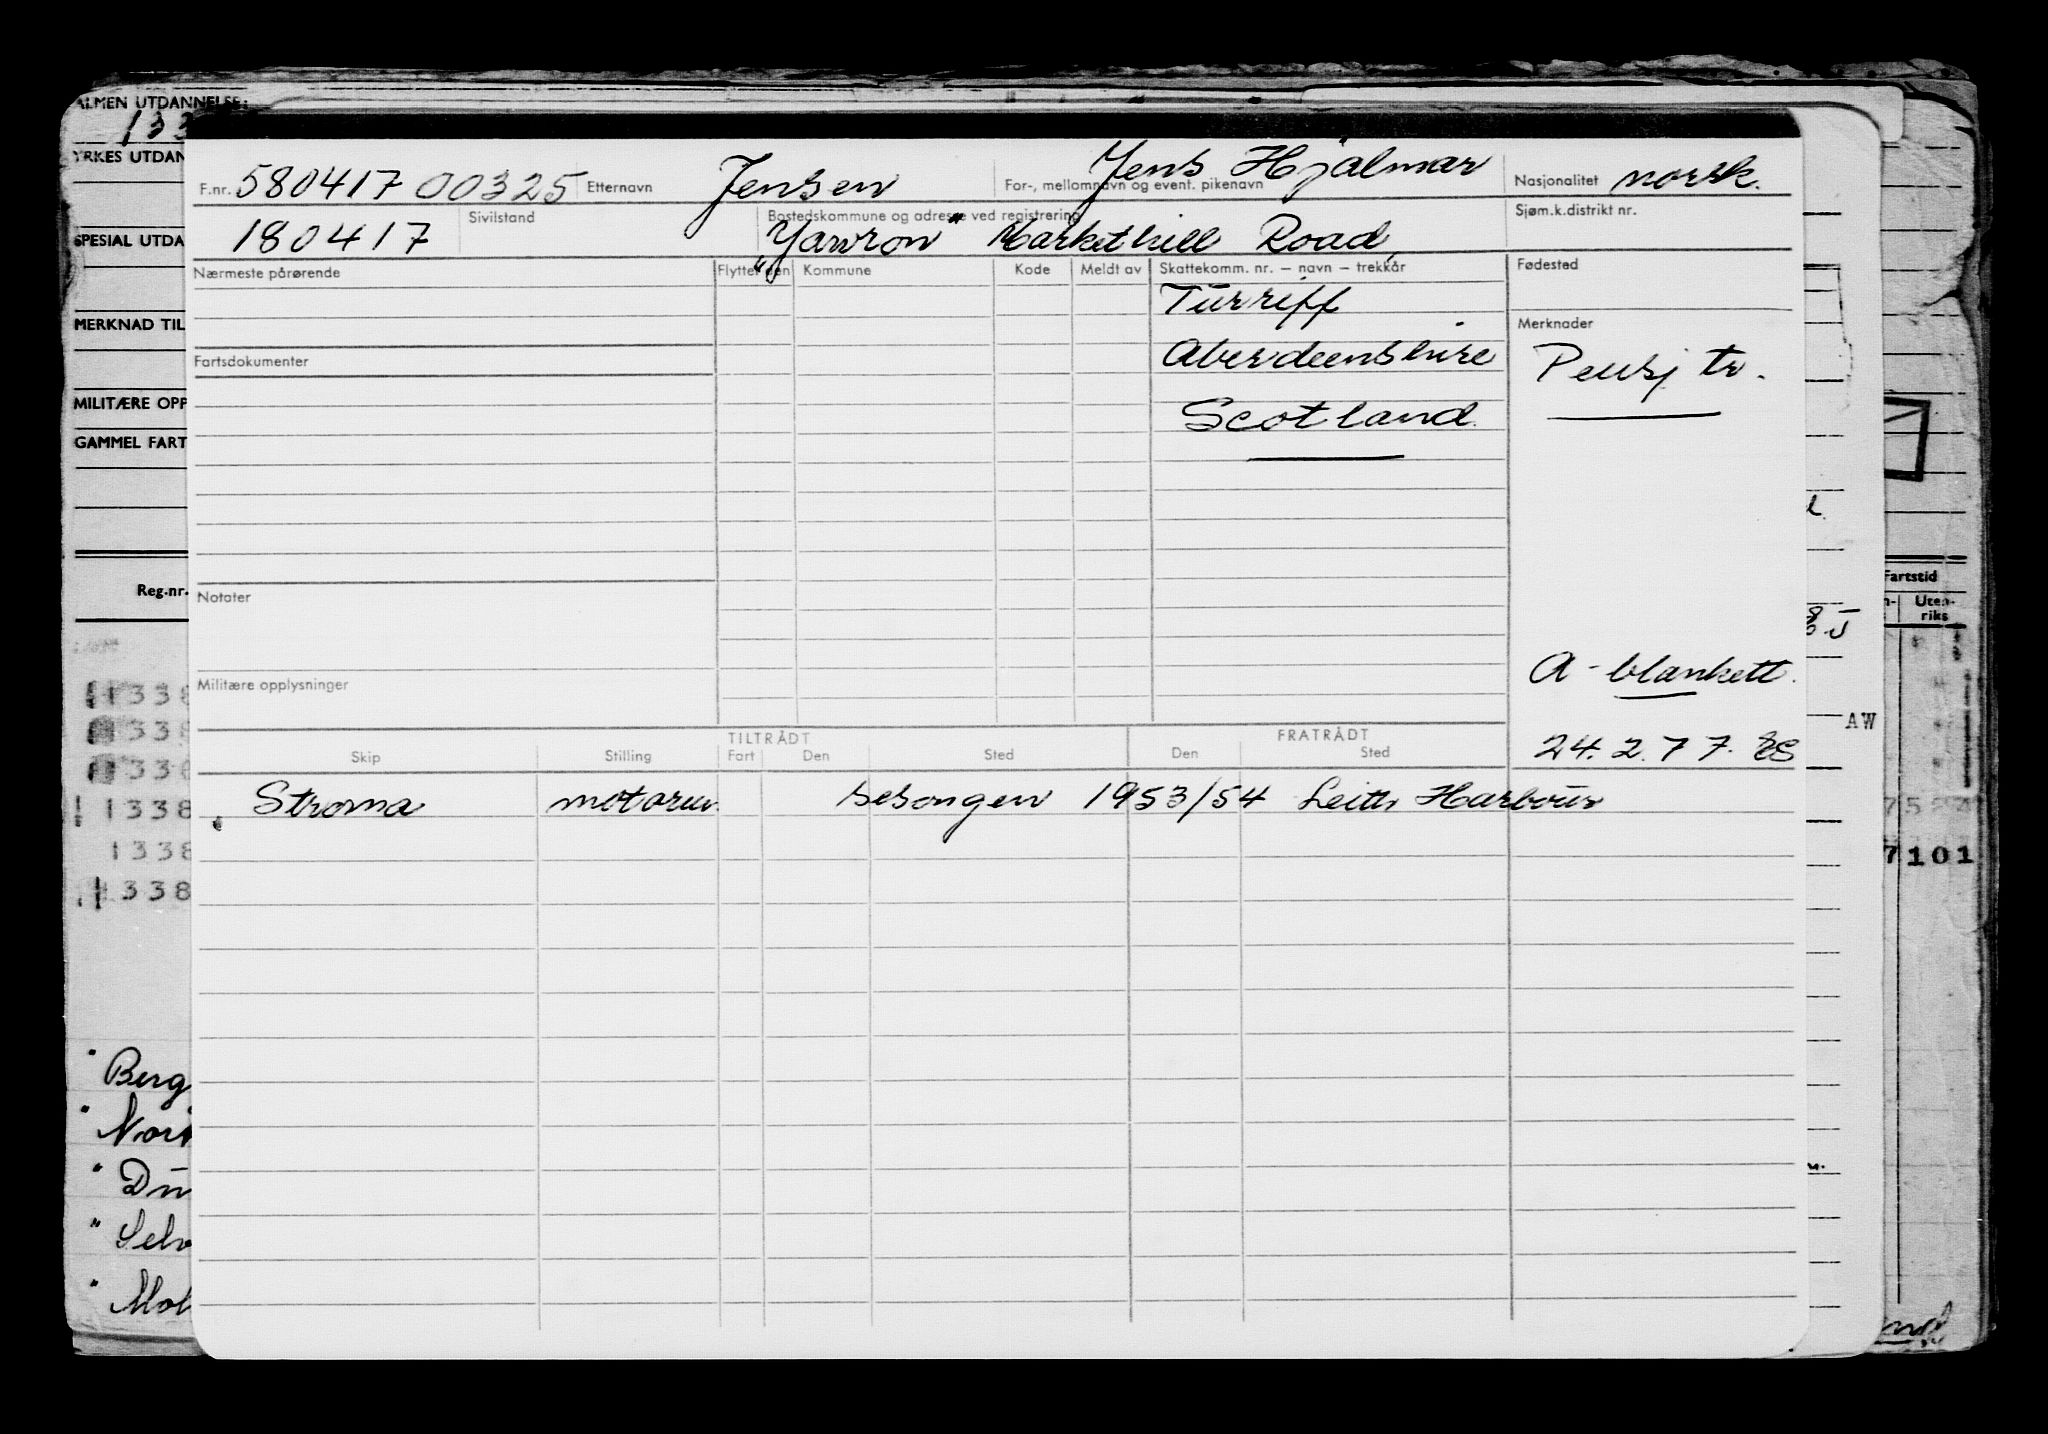 ALMEN UTDANNELSE:
133
YRKES UTDAN
SPESIAL UTDA
MERKNAD TIL
MILITÆRE OPP
GAMMEL FART
Reg.nr.
1338
338
1338
1338
1338
Berg
Dü
Selv
F.nr. 580417 00325 Etternavn Jensen For-, mellomnavn og event. pikenavn Jens Hjalmar Nasjonalitet norsk.
180417 Sivilstand Bostedskommune og adresse ved registrering "Yawron" Markethill Road, Sjøm.k.distrikt nr.
Nærmeste pårørende Flyttet den Kommune Kode Meldt av Skattekomm. nr. – navn – trekkår Fødested
Turriff
Merknader
Fartsdokumenter Aberdeenshire Pensj tr.
Scotland.
Notater
Militære opplysninger
A-blankett.
24.2.77.
TILTRÅDT FRATRÅDT
Skip Stilling Fart Den Sted Den Sted
Stroma motorm. sesongen 1953/54 Leith Harbour
Fartstid
Uten-
riks
AW
7101